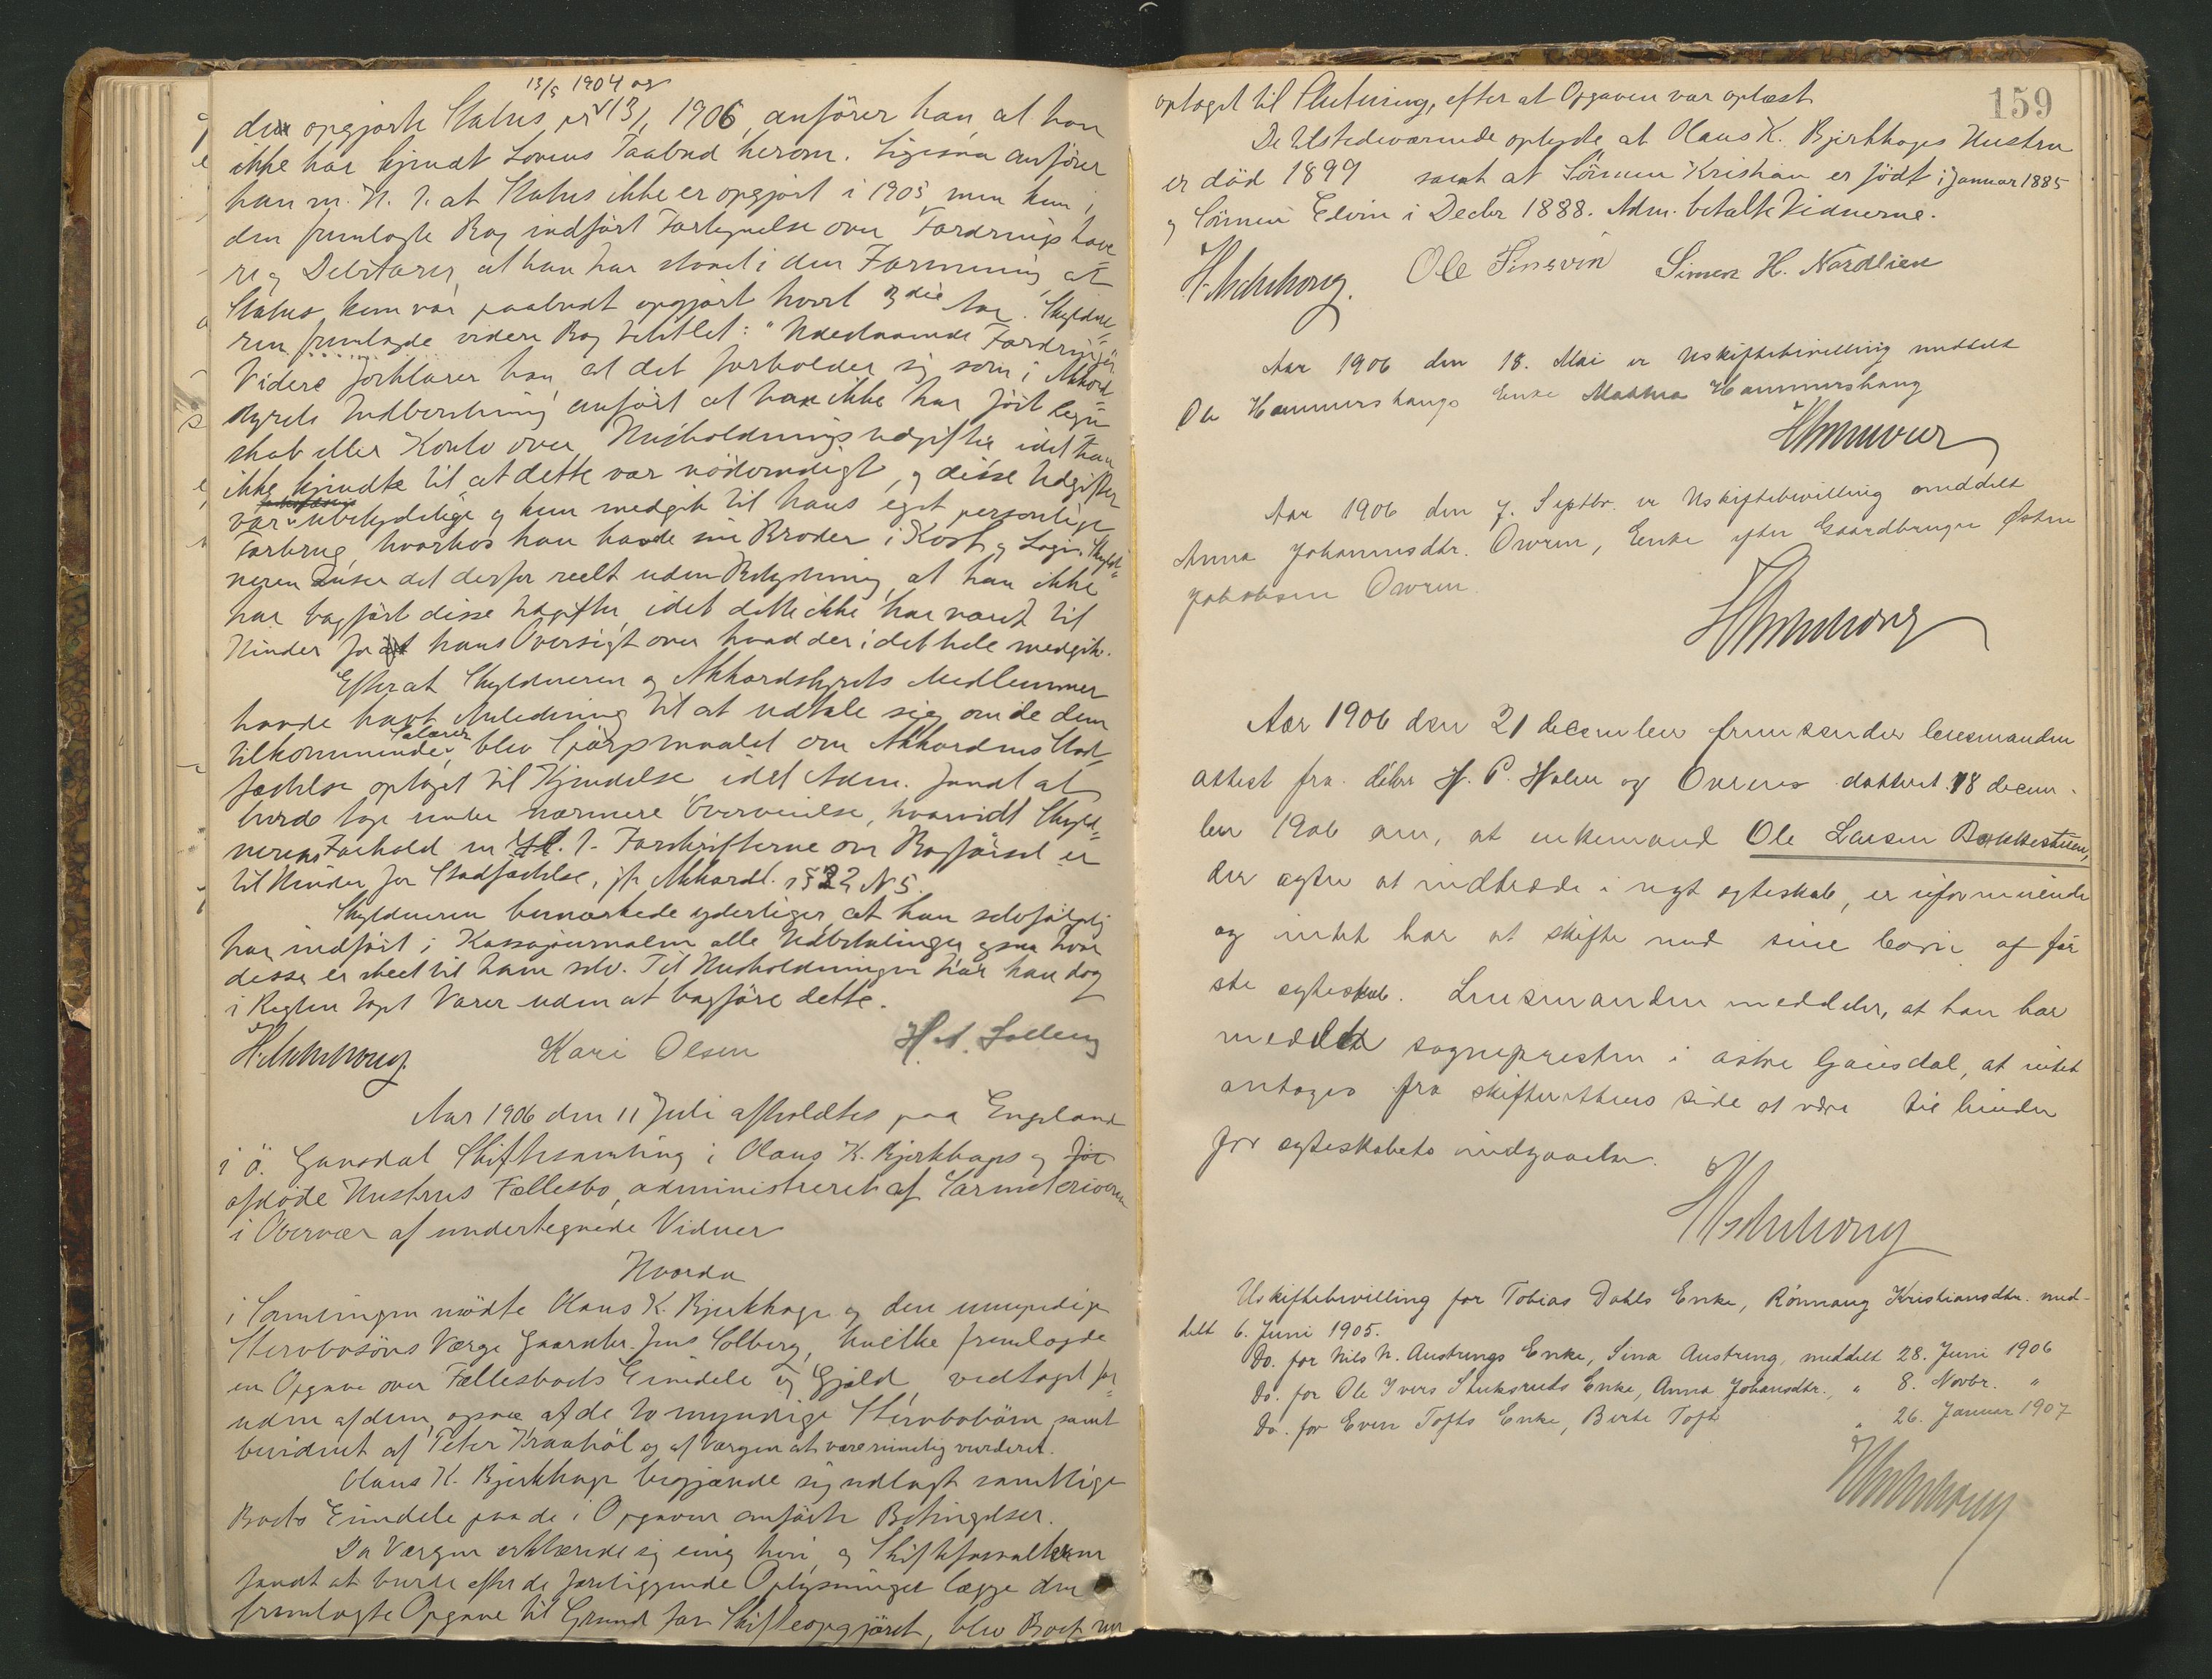 13/5 1904 og
den opgjorte Status pr 13/1 1906, anfører han, at han
ikke har kjendt Lovens Paabud herom. Ligesaa anfører
han m. H. t. at Status ikke er opgjort i 1905 men kun i
den fremlagte Bog indført Fortegnelse over Fordringshave
re og Debitorer, at han har staaet i den Formening, at
Status kun var paabudt opgjort hvert 2det Aar. Skyldne
ren fremlagde videre Bog betitlet: "Udestaaende Fordringer
Videre forklarer han, at det forholder sig som i Akkord
styrets Indberetning anført at han ikke har ført Regn
skab eller Konto over Husholdningsudgifter idet han
ikke kjendte til at dette var nødvendigt, og disse Udgifter
var ubetydelige og kun medgik til hans eget personlige
Forbrug, hvorhos han havde sin Broder i Kost og Logi. Skyld-
neren anser det derfor reelt uden Betydning, at han ikke
har bogført disse Udgifter, idet dette ikke har været til
Hinder for hans Oversigt over hvad der i det hele medgik.
Efter at Skyldneren og Akkordstyrets Medlemmer
havde havt Anledning til at udtale sig om de dem
tilkommende Salærer, blev Spørgsmaalet om Akkordens Stad-
fæstelse optaget til Kjendelse, idet Adm. fandt at
burde tage under nærmere Overveielse, hvorvidt Skyld-
nerens Forhold m. H. t. Forskrifterne om Bogførsel er
til Hinder for Stadfæstelse, jfr Akkordl. § 22 N 5.
Skyldneren bemærkede yderligere, at han selvfølgelig
har indført i Kassajournalen alle Udbetalinger ogsaa hvor
disse er skeet til ham selv. Til Husholdningen har han dog
i Reglen tagt Varer uden at bogføre dette.
Kari Olsen H. A. Solberg
Aar 1906 den 11 Juli afholdtes paa Engeland
i Ö. Gausdal Skiftesamling i Olaus K. Bjerkhages og
afdøde Hustrus Fællesbo, administreret af Sorenskriveren
i Overvær af undertegnede Vidner
Hvorda
i Samlingen mødte Olaus K. Bjerkhage og den umyndige
Stervbosøns Værge Gaardbr. Jens Solberg, hvilke fremlagde
en Opgave over Fællesboets Eiendele og Gjæld, vedtaget for
uden af dem, ogsaa af de to myndige Stervbobørn samt
bevidnet af Peter Kraabøl og af Værgen at være rimelig vurderet.
Olaus K. Bjerkhage begjærede sig udlagt samtlige
Boets Eiendele paa de i Opgaven anførte Betingelser.
Da Værgen erklærede sig enig heri, og Skifteforvalteren
fandt at burde efter de foreliggende Oplysninger lægge den
fremlagte Opgave til Grund for Skifteopgjøret, blev Boet nu
159
optaget til Slutning, efter at Opgaven var oplæst
De tilstedeværende oplyste at Olaus K. Bjerkhages Hustru
er død 1899 samt at Sønnen Kristian er født i Januar 1885
og Sønnen Elvin i Decbr 1888. Adm. betalte Vidnerne.
Ole Finsvin Simen H. Nordlien
Aar 1906 den 18. Mai er Uskiftebevilling meddelt
Ole Hammershaugs Enke Mathea Hammershaug
Aar 1906 den 7. Septbr. er Uskiftebevilling meddelt
Anna Johannesdtr. Owren, Enke efter Gaardbruger Østen
Jakobsen Owren.
Aar 1906 den 21 december fremsender lensmanden
attest fra d'hrr H. P. Holm og Overens datteret 18 decem-
ber 1906 om, at enkemand Ole Larsen Bakkestuen,
der agter at indtræde i nyt egteskab, er uformuende
og intet har at skifte med sine børn af før
ste egteskab. Lensmanden meddeler, at han har
meddelt sognepresten i østre Gausdal, at intet
antages fra skifterettens side at være til hinder
for egteskabets indgaaelse.
Uskiftebevilling for Tobias Dahls Enke, Rønnaug Kristiansdtr. med-
delt 6. Juni 1905.
Do. for Nils N. Austrengs Enke, Sina Austreng, meddelt 28. Juni 1906
Do. for Ole Ivers Stuksruds Enke, Anna Johansdtr., " 8. Novbr. "
Do. for Even Tofts Enke, Berte Toft " 26. Januar 1907